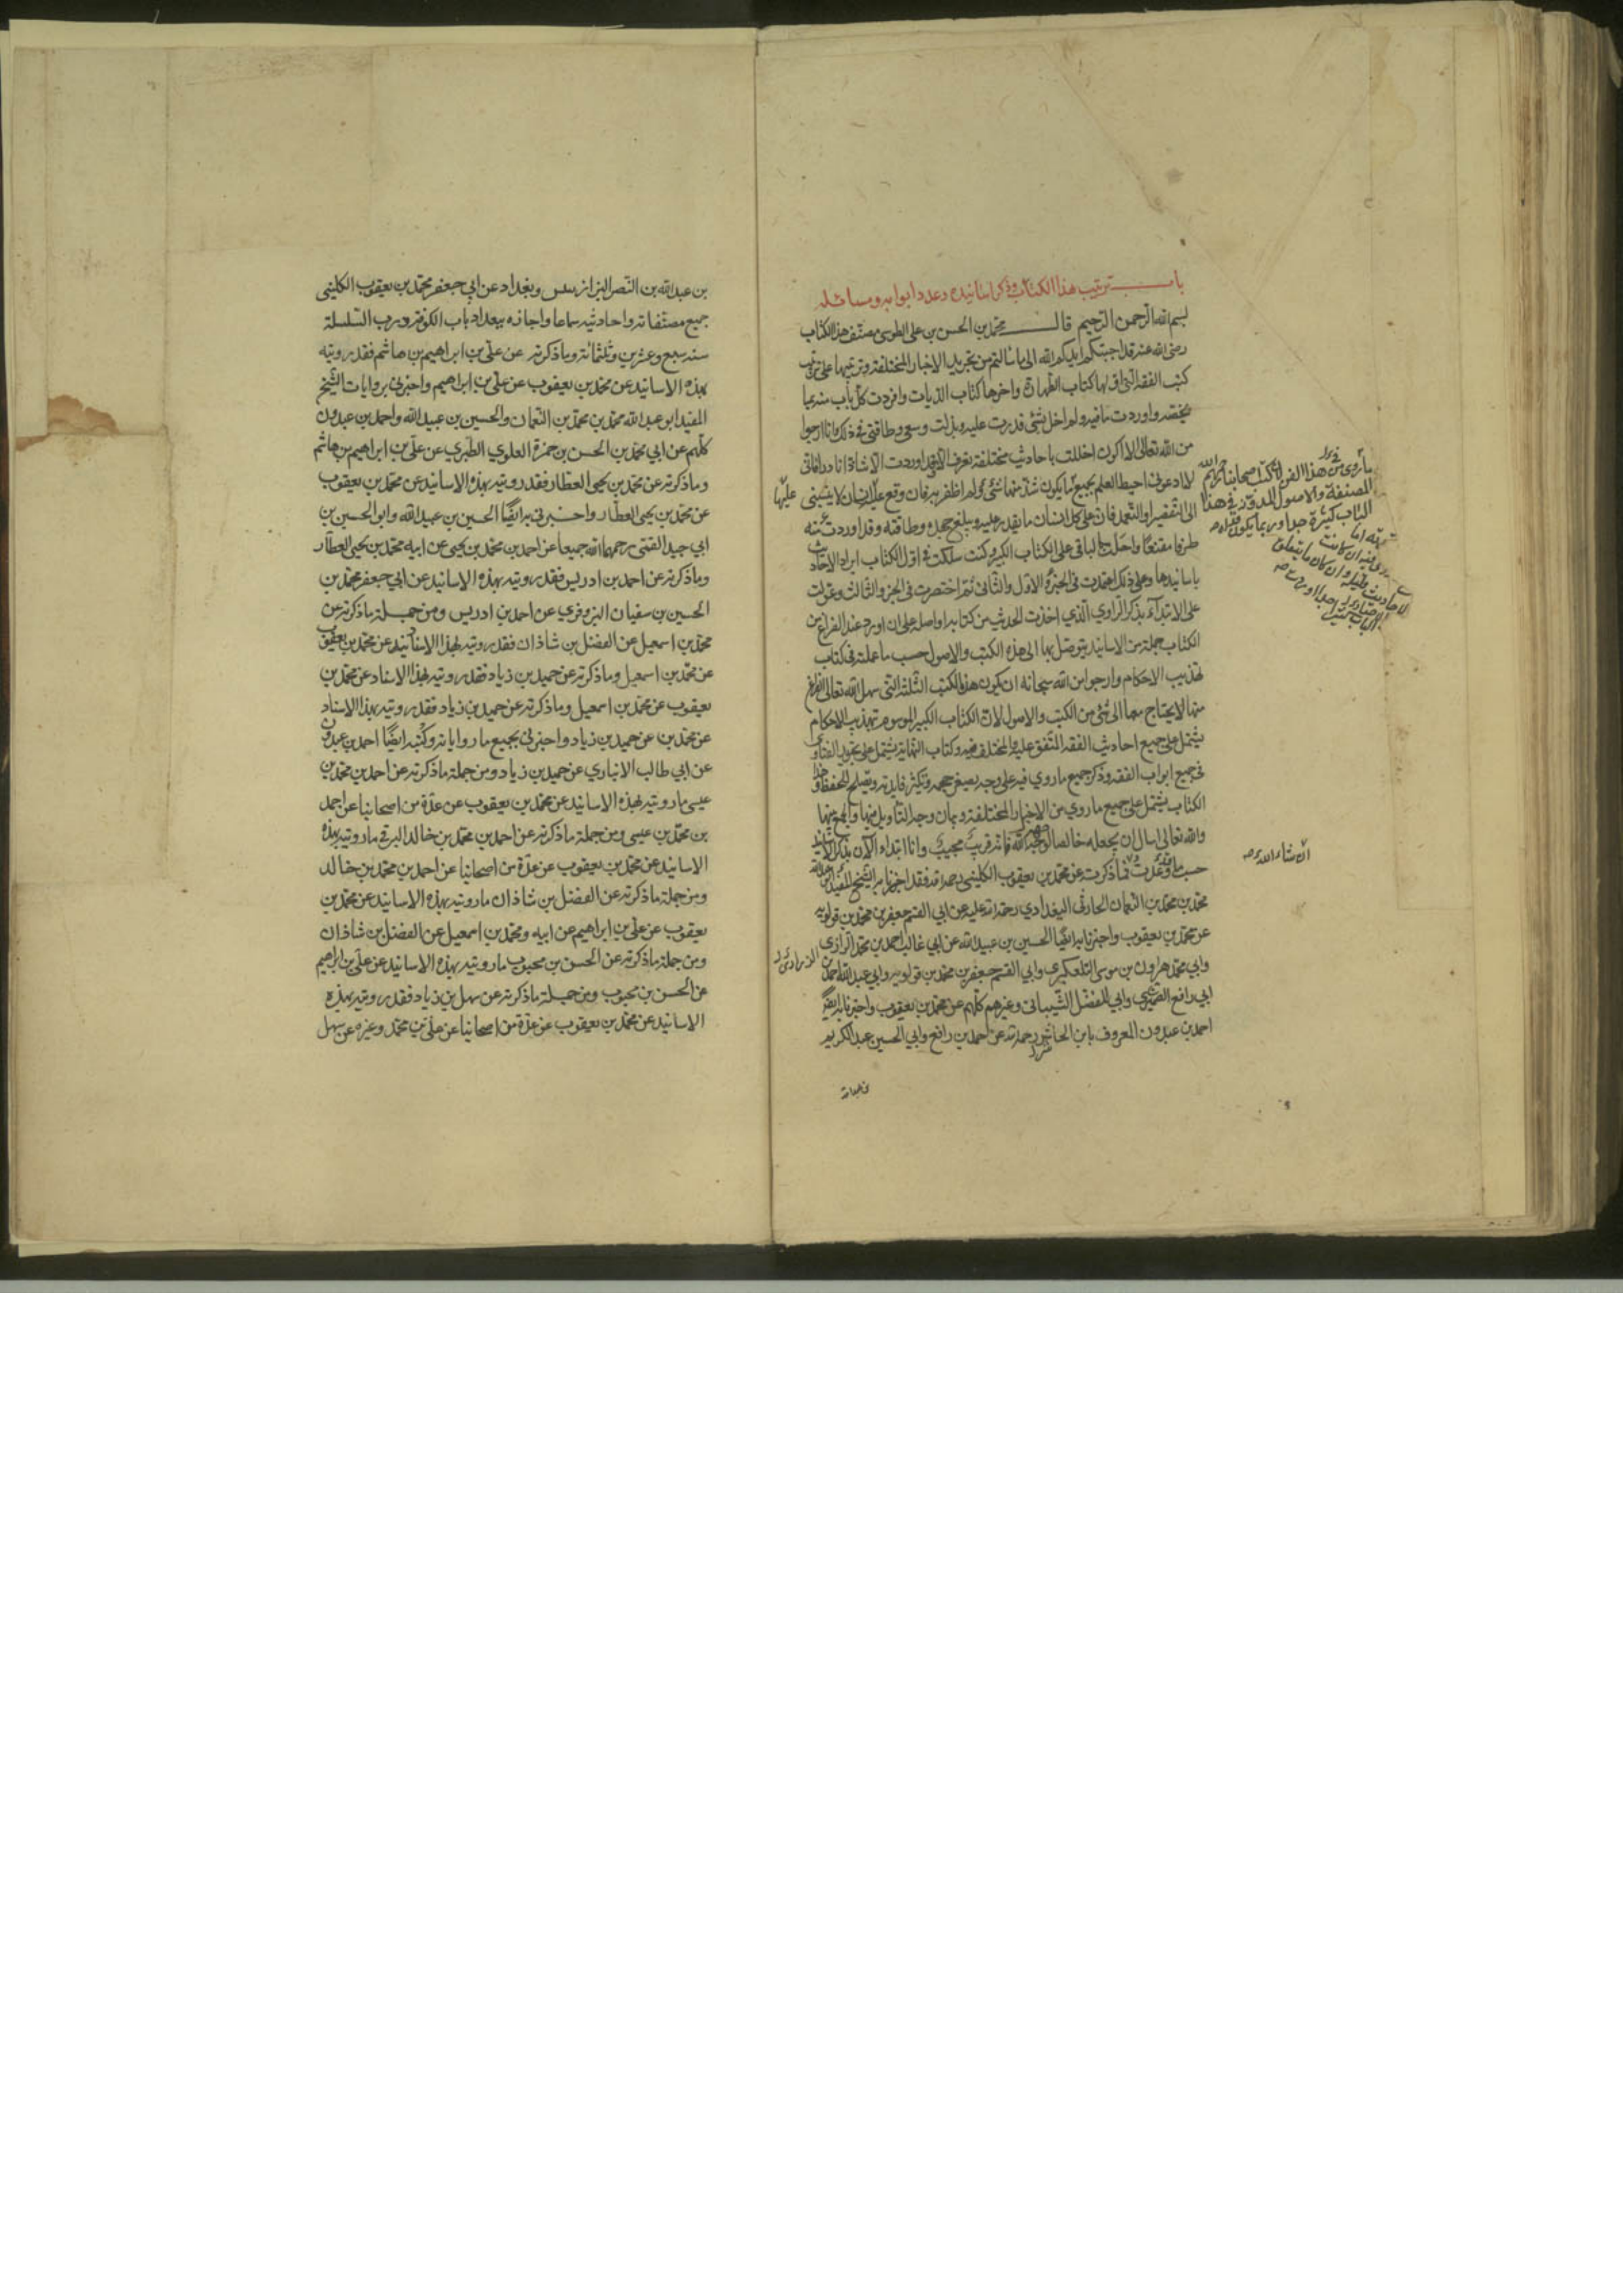 باب ترتيب هذا الكتاب وذكر اسانيده وعدد ابوابه ومسائله
بسم الله الرحمن الرحيم قال محمد بن الحسن بن علي الطوسي مصنف هذا الكتاب
رضي الله عنه قد اجبتكم ايدكم الله الى ما سالتم من تجريد الاخبار المختلفة وترتيبها على ترتيب
كتب الفقه التي اولها كتاب الطهارة واخرها كتاب الديات وافردت كل باب منه بما
يختصه واوردت ما فيه ولم اخل بشئ قدرت عليه وبذلت وسعي وطاقتي في ذلك وانا ارجوا
من الله تعالى الا اكون اخللت باحاديث مختلفة تعرف الا وقد اوردت الا شاذا نادرا فاني
لا ادعي اني احيط العلم بجميع ما يكون شذ منها شئ ولم اظفر به فان وقع عليه انسان لا ينسبني
الى التقصير او التعمد فان على كل انسان ما يقدر عليه ويبلغ جهده وطاقته وقد اوردت منه
طرفا مقنعا واحلت بالباقي على الكتاب الكبير وكنت سلكت في اول الكتاب ايراد الاحاديث
باسانيدها وعلى ذلك اعتمدت في الجزء الاول والثاني ثم اختصرت في الجزو الثالث وعولت
على الابتداء بذكر الراوي الذي اخذت الحديث من كتابه او اصله على ان اورد عند الفراغ من
الكتاب جملة من الاسانيد يتوصل بها الى هذه الكتب والاصول حسب ما عملته في كتاب
تهذيب الاحكام وارجو من الله سبحانه ان يكون هذه الكتب الثلثة التي سهل الله تعالى الفراغ
منها لا يحتاج معها الى شئ من الكتب والاصول لان الكتاب الكبير الموسوم بتهذيب الاحكام
يشتمل على جميع احاديث الفقه المتفق عليه والمختلف فيه وكتاب النهاية يشتمل على تجريد الفتاوي
في جميع ابواب الفقه وذكر جميع ما روي فيه على وجه يصغر حجمه وتكثر فايدته ويصلح للحفظ وهذا
الكتاب يشتمل على جميع ما روي من الاخبار المختلفة وبيان وجه التاويل منها والجمع بينها
والله تعالى اسال ان يجعله خالصا لوجهه الله فانه قريب مجيب وانا ابتداء الان بذكر الاسانيد
حسب ما وعدت فما ذكرت عن محمد بن يعقوب الكليني رحمه الله فقد اخبرنا به الشيخ المفيد
محمد بن محمد بن النعمان الحارثي البغدادي رحمة الله عليه عن ابي القسم جعفر بن محمد بن قولويه
عن محمد بن يعقوب واخبرنا به ايضا الحسين بن عبيد الله عن ابي غالب احمد بن محمد الرازي
وابي محمد هرون بن موسى التلعكبري وابي القسم جعفر بن محمد بن قولويه وابي عبد الله احمد بن
ابي رافع الصيمري وابي المفضل الشيباني وغيرهم كلهم عن محمد بن يعقوب واخبرنا به ايضا
احمد بن عبدون المعروف بابن الحاشر رحمه الله عن احمد بن رافع وابي الحسين عبد الكريم
عليها
الزراري
ان شاء الله
بن عبد الله بن النصر البزاز بتنيس وبغداد عن ابي جعفر محمد بن يعقوب الكليني
جميع مصنفاته واحاديثه سماعا واجازه ببغداد بباب الكوفه بدرب السلسلة
سنه سبع وعشرين وثلثمائة وما ذكرته عن علي بن ابراهيم بن هاشم فقد رويته
بهذه الاسانيد عن محمد بن يعقوب عن علي بن ابراهيم واخبرني بروايات الشيخ
المفيد ابو عبد الله محمد بن محمد بن النعمان والحسين بن عبيد الله واحمد بن عبدون
كلهم عن ابي محمد بن الحسن بن حمزة العلوي الطبري عن علي بن ابراهيم بن هاشم
وما ذكرته عن محمد بن يحيى العطار فقد رويته بهذه الاسانيد عن محمد بن يعقوب
عن محمد بن يحيى العطار واخبرني به ايضا الحسين بن عبيد الله وابو الحسين بن
ابي جيد القمي رحمهما الله جميعا عن احمد بن محمد بن يحيى عن ابيه محمد بن يحيى العطار
وما ذكرته عن احمد بن ادريس فقد رويته بهذه الاسانيد عن ابي جعفر محمد بن
الحسين بن سفيان البزوفري عن احمد بن ادريس ومن جملة ما ذكرته عن
محمد بن اسمعيل عن الفضل بن شاذان فقد رويته بهذا الاسانيد عن محمد بن يعقوب
عن محمد بن اسمعيل وما ذكرته عن حميد بن زياد فقد رويته بهذا الاسناد عن محمد بن
يعقوب عن محمد بن اسمعيل وما ذكرته عن حميد بن زياد فقد رويته بهذا الاسناد
عن محمد بن عن حميد بن زياد واخبرني بجميع ما رواياته وكتبه ايضا احمد بن عبدون
عن ابي طالب الانباري عن حميد بن زياد ومن جملة ما ذكرته عن احمد بن محمد بن
عيسى ما رويته بهذه الاسانيد عن محمد بن يعقوب عن عدة من اصحابنا عن احمد
بن محمد بن عيسى ومن جملة ما ذكرته عن احمد بن محمد بن خالد البرقي ما رويته بهذه
الاسانيد عن محمد بن يعقوب عن عدة من اصحابنا عن احمد بن محمد بن خالد
ومن جملة ما ذكرته عن الفضل بن شاذان ما رويته بهذه الاسانيد عن محمد بن
يعقوب عن علي بن ابراهيم عن ابيه ومحمد بن اسمعيل عن الفضل بن شاذان
ومن جملة ما ذكرته عن الحسن بن محبوب ما رويته بهذه الاسانيد عن علي بن ابراهيم
عن الحسن بن محبوب ومن جملة ما ذكرته عن سهل بن زياد فقد رويته بهذه
الاسانيد عن محمد بن يعقوب عن عدة من اصحابنا عن علي بن محمد وغيره عن سهل